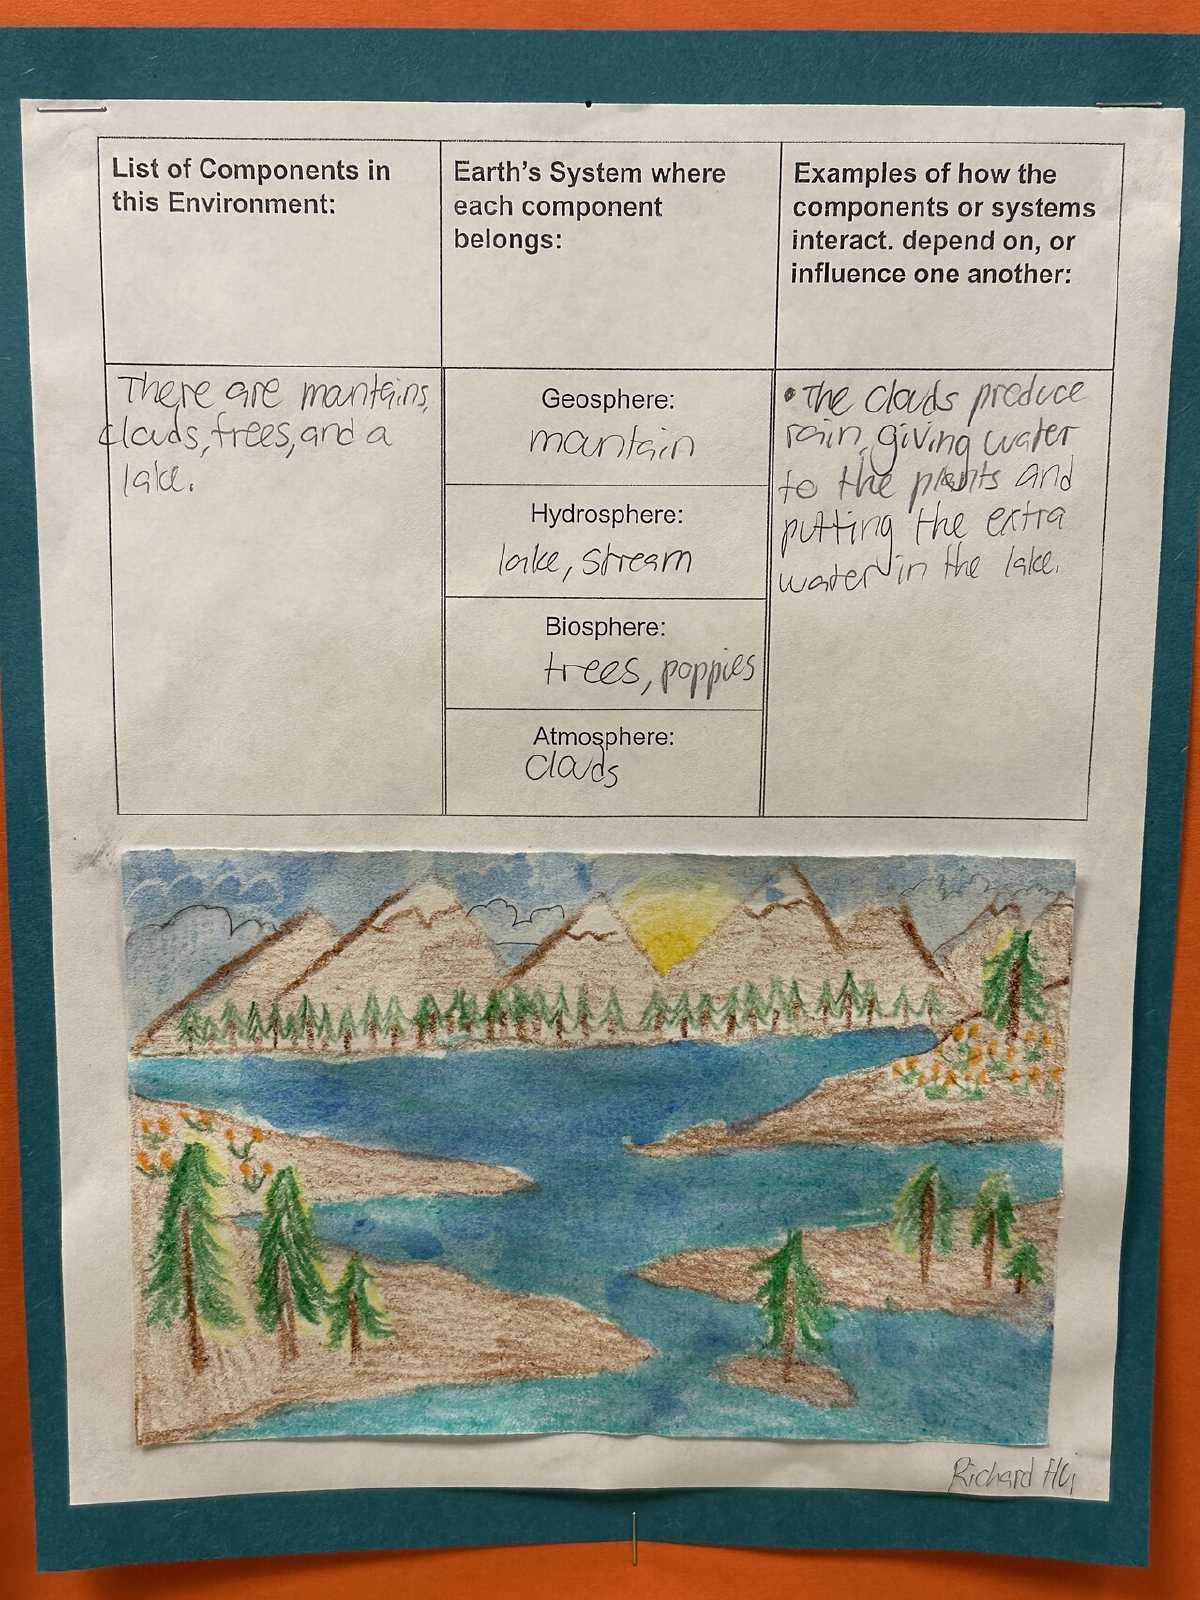 List of Components in
this Environment:
Earth's System where
each component
belongs:
Examples of how the
components or systems
interact. depend on, or
influence one another:
There are mantains,
clouds, trees, and a
lake.
Geosphere:
mountain
Hydrosphere:
lake, stream
Biosphere:
trees, poppies
Atmosphere:
clouds
• The clouds produce
rain, giving water
to the plants and
putting the extra
water in the lake.
Richard